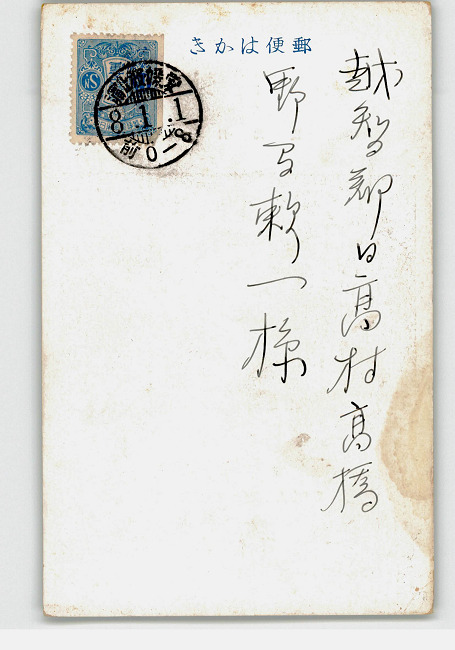 郵便はかき
越智郡日高村高橋
野間頼一様
愛媛
8.1.1
前0-8